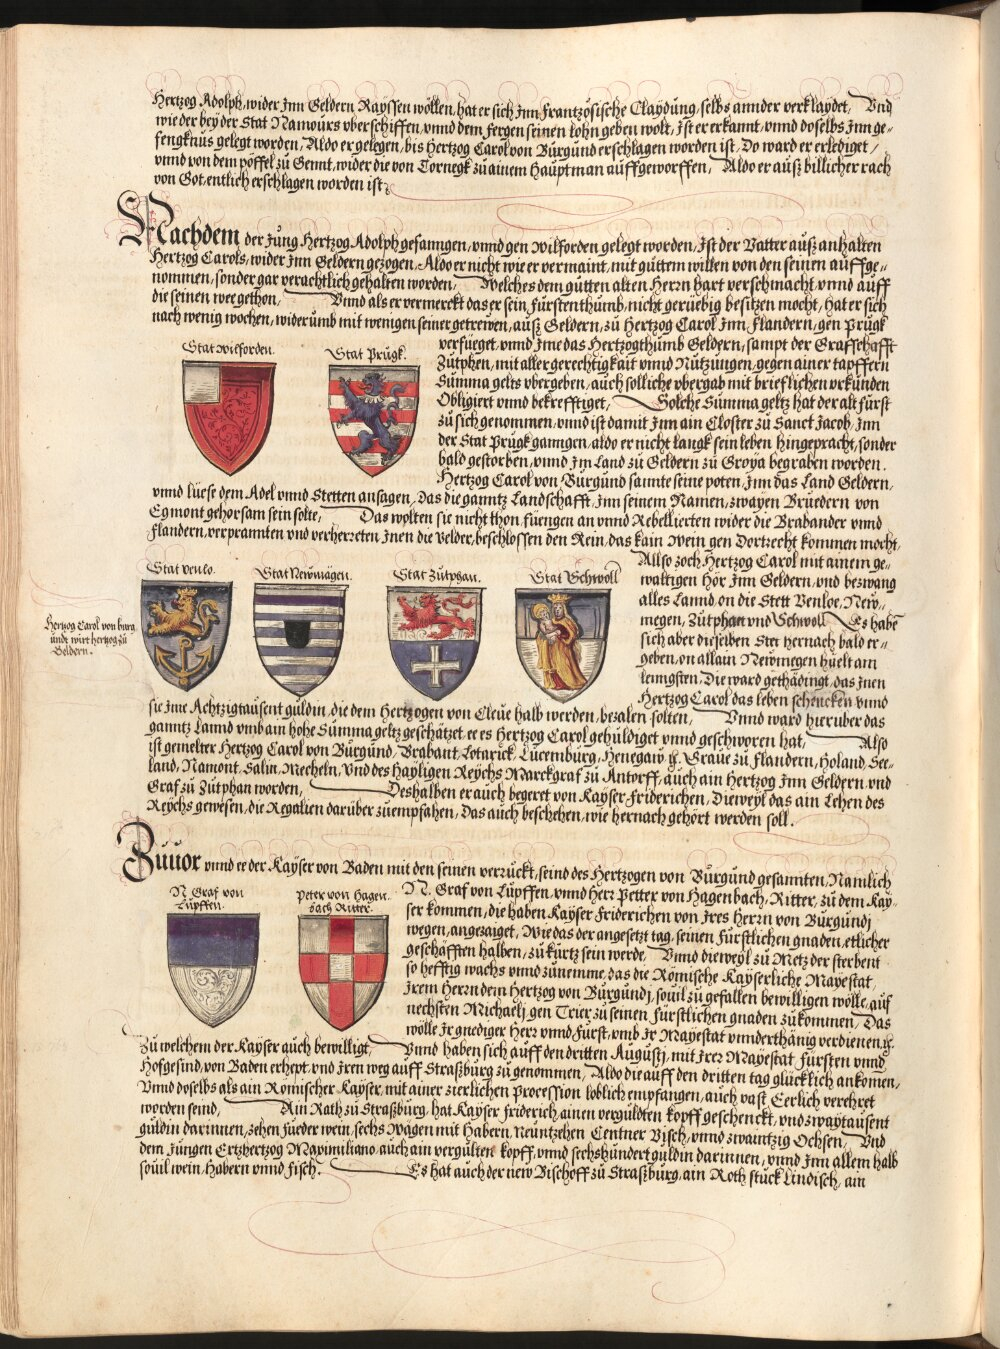 Hertzog Adolph, wider Jnn Geldern Rayssen wöllen, hat er sich Jnn Frantzösische Claydung, selbs annder verklaydet, Vnd
wie der bey der Stat Namours vberschiffen, vnnd dem fergen seinen lohn geben wolt, Jst er erkannt, vnnd doselbs Jnn ge-
fengknus gelegt worden, Aldo er gelegen, bis Hertzog Carol von Burgund erschlagen worden ist, Do ward er erlediget,
vnnd von dem pöffel zu Gennt, wider die von Tornegk zu ainem Hauptman auffgeworffen, Aldo er ausz billicher rach
von Got, entlich erschlagen worden ist.
Nachdem der Jung Hertzog Adolph gefanngen, vnnd gen Wilforden gelegt worden, Jst der Vatter ausz anhalten
Hertzog Carols, wider Jnn Geldern gezogen, Aldo er nicht wie er vermaint, mit guttem willen von den seinen auffge-
nommen, sonder gar verachtlich gehalten worden, Welches dem gutten alten Herrn hart verschmacht, vnnd auff
die seinen wee gethon, Vnnd als er vermerckt das er sein Fürstenthumb, nicht gerüebig besitzen mocht, hat er sich
nach wenig wochen, widerumb mit wenigen seiner getrewen, ausz Geldern, zu Hertzog Carol Jnn Flandern, gen Prugk
verfüeget, vnnd Jme das Hertzogthumb Geldern, sampt der Grafschafft
Zutphen, mit aller gerechtigkait vnnd Nutzungen, gegen ainer tapffern
Summa gelts vbergeben, auch solliche vbergab mit brieflichen vrkunden
Obligiert vnnd bekrefftiget, Solche Summa geltz hat der alt fürst
zu sich genommen, vnnd ist damit Jnn ain Closter zu Sanct Jacob, Jnn
der Stat Prugk ganngen, aldo er nicht langk sein leben hingepracht, sonder
bald gestorben, vnnd Jm Land zu Geldern zu Groya begraben worden.
Hertzog Carol von Burgund sannte seine poten, Jnn das Land Geldern,
Stat Wilforden.
Stat Prugk.
vnnd lüesz dem Adel vnnd Stetten ansagen, Das die ganntz Landschafft, Jnn seinem Namen, zwayen Bruedern von
Egmont gehorsam sein solte, Das wolten sie nicht thon, fiengen an vnnd Rebellierten wider die Brabander vnnd
Flandern, verprannten vnd verherreten Jnen die Velder, beschlossen den Rein, das kain Wein gen Dortrecht kommen mocht,
Allso zoch Hertzog Carol mit ainem ge-
waltigen Hör Jnn Geldern, vnd bezwang
alles Lannd, on die Stett Venloe, New-
megen, Zutphan vnd Schwoll, Es habe
sich aber dieselben Stet hernach bald er-
geben, on allain Newmegen hüelt am
lenngsten, Die ward gethädingt, das Jnen
Hertzog Carol das leben schencken vnnd
Stat Venlo.
Stat Newmägen.
Stat Zutphan.
Stat Schwoll
Hertzog Carol von burg
undt wirt hertzog zu
Geldern.
sie Jme Achtzigtausent guldin, die dem Hertzogen von Cleue halb werden, bezalen solten, Vnnd ward hierüber das
ganntz Lannd vmb ain hohe Summa geltz geschätzet, ee es Hertzog Carol gehuldiget vnnd geschworen hat, Also
ist gemelter Hertzog Carol von Burgund, Brabant, Lotarick, Lucemburg, Henegaw ꝛc. Graue zu Flandern, Holand, See-
land, Namont, Salin, Mecheln, Vnd des Hayligen Reychs Marckgraf zu Antorff, auch ain Hertzog Jnn Geldern vnd
Graf zu Zutphan worden, Deshalben er auch begeret von Kayser Friderichen, Dieweyl das ain Lehen des
Reychs gewesen, die Regalien darüber zuempfahen, Das auch beschehen, wie hernach gehört werden soll.
Zuuor vnnd ee der Kayser von Baden mit den seinen verruckt, seind des Hertzogen von Burgund gesannten, Namlich
N. Graf von Lupffen, vnnd Herr Petter von Hagenbach, Ritter, zu dem Kay-
ser kommen, die haben Kayser Friderichen von Jres Herrn von Burgundj
wegen, angezaiget, Wie das der angesetzt tag, seinen Fürstlichen gnaden, etlicher
geschäfften halben, zu kurtz sein werde, Vnnd dieweyl zu Metz der sterbent
so hefftig wachs vnnd zunemme, das die Römische Kayserliche Mayestat,
Jrem Herrn dem Hertzog von Burgundj, souil zu gefallen bewilligen wölle, auf
nechsten Michaelj gen Trier zu seinen Fürstlichen gnaden zukommen, Das
wölle Jr gnediger Herr vnnd Fürst, vmb Jr Mayestat vnnderthänig verdienen, ꝛc.
N. Graf von
Lupffen.
Peter von Hagen-
bach Ritter.
Zu welchem der Kayser auch bewilligt, Vnnd haben sich auff den dritten Augustj, mit Jrer Mayestat, Fürsten vnnd
Hofgesind, von Baden erhept, vnd Jren weg auff Straszburg zu genommen, Aldo die auff den dritten tag glücklich ankomen,
Vnnd doselbs als ain Römischer Kayser, mit ainer zierlichen Procession loblich empfangen, auch vast Eerlich verehret
worden seind, Ain Rath zu Straszburg, hat Kayser Friderich, ainen vergulten kopff geschenckt, vnd zwaytausent
guldin darinnen, zehen fueder wein, sechs Wägen mit Habern, Neuntzehen Centner Visch, vnnd zwaintzig Ochsen, Vnd
dem Jungen Ertzhertzog Maximiliano, auch ain vergulten kopff, vnnd sechshundert guldin darinnen, vnnd Jnn allem halb
souil wein, Habern vnnd fisch. Es hat auch der new Bischoff zu Straszburg, ain Roth stuck Lindisch, ain